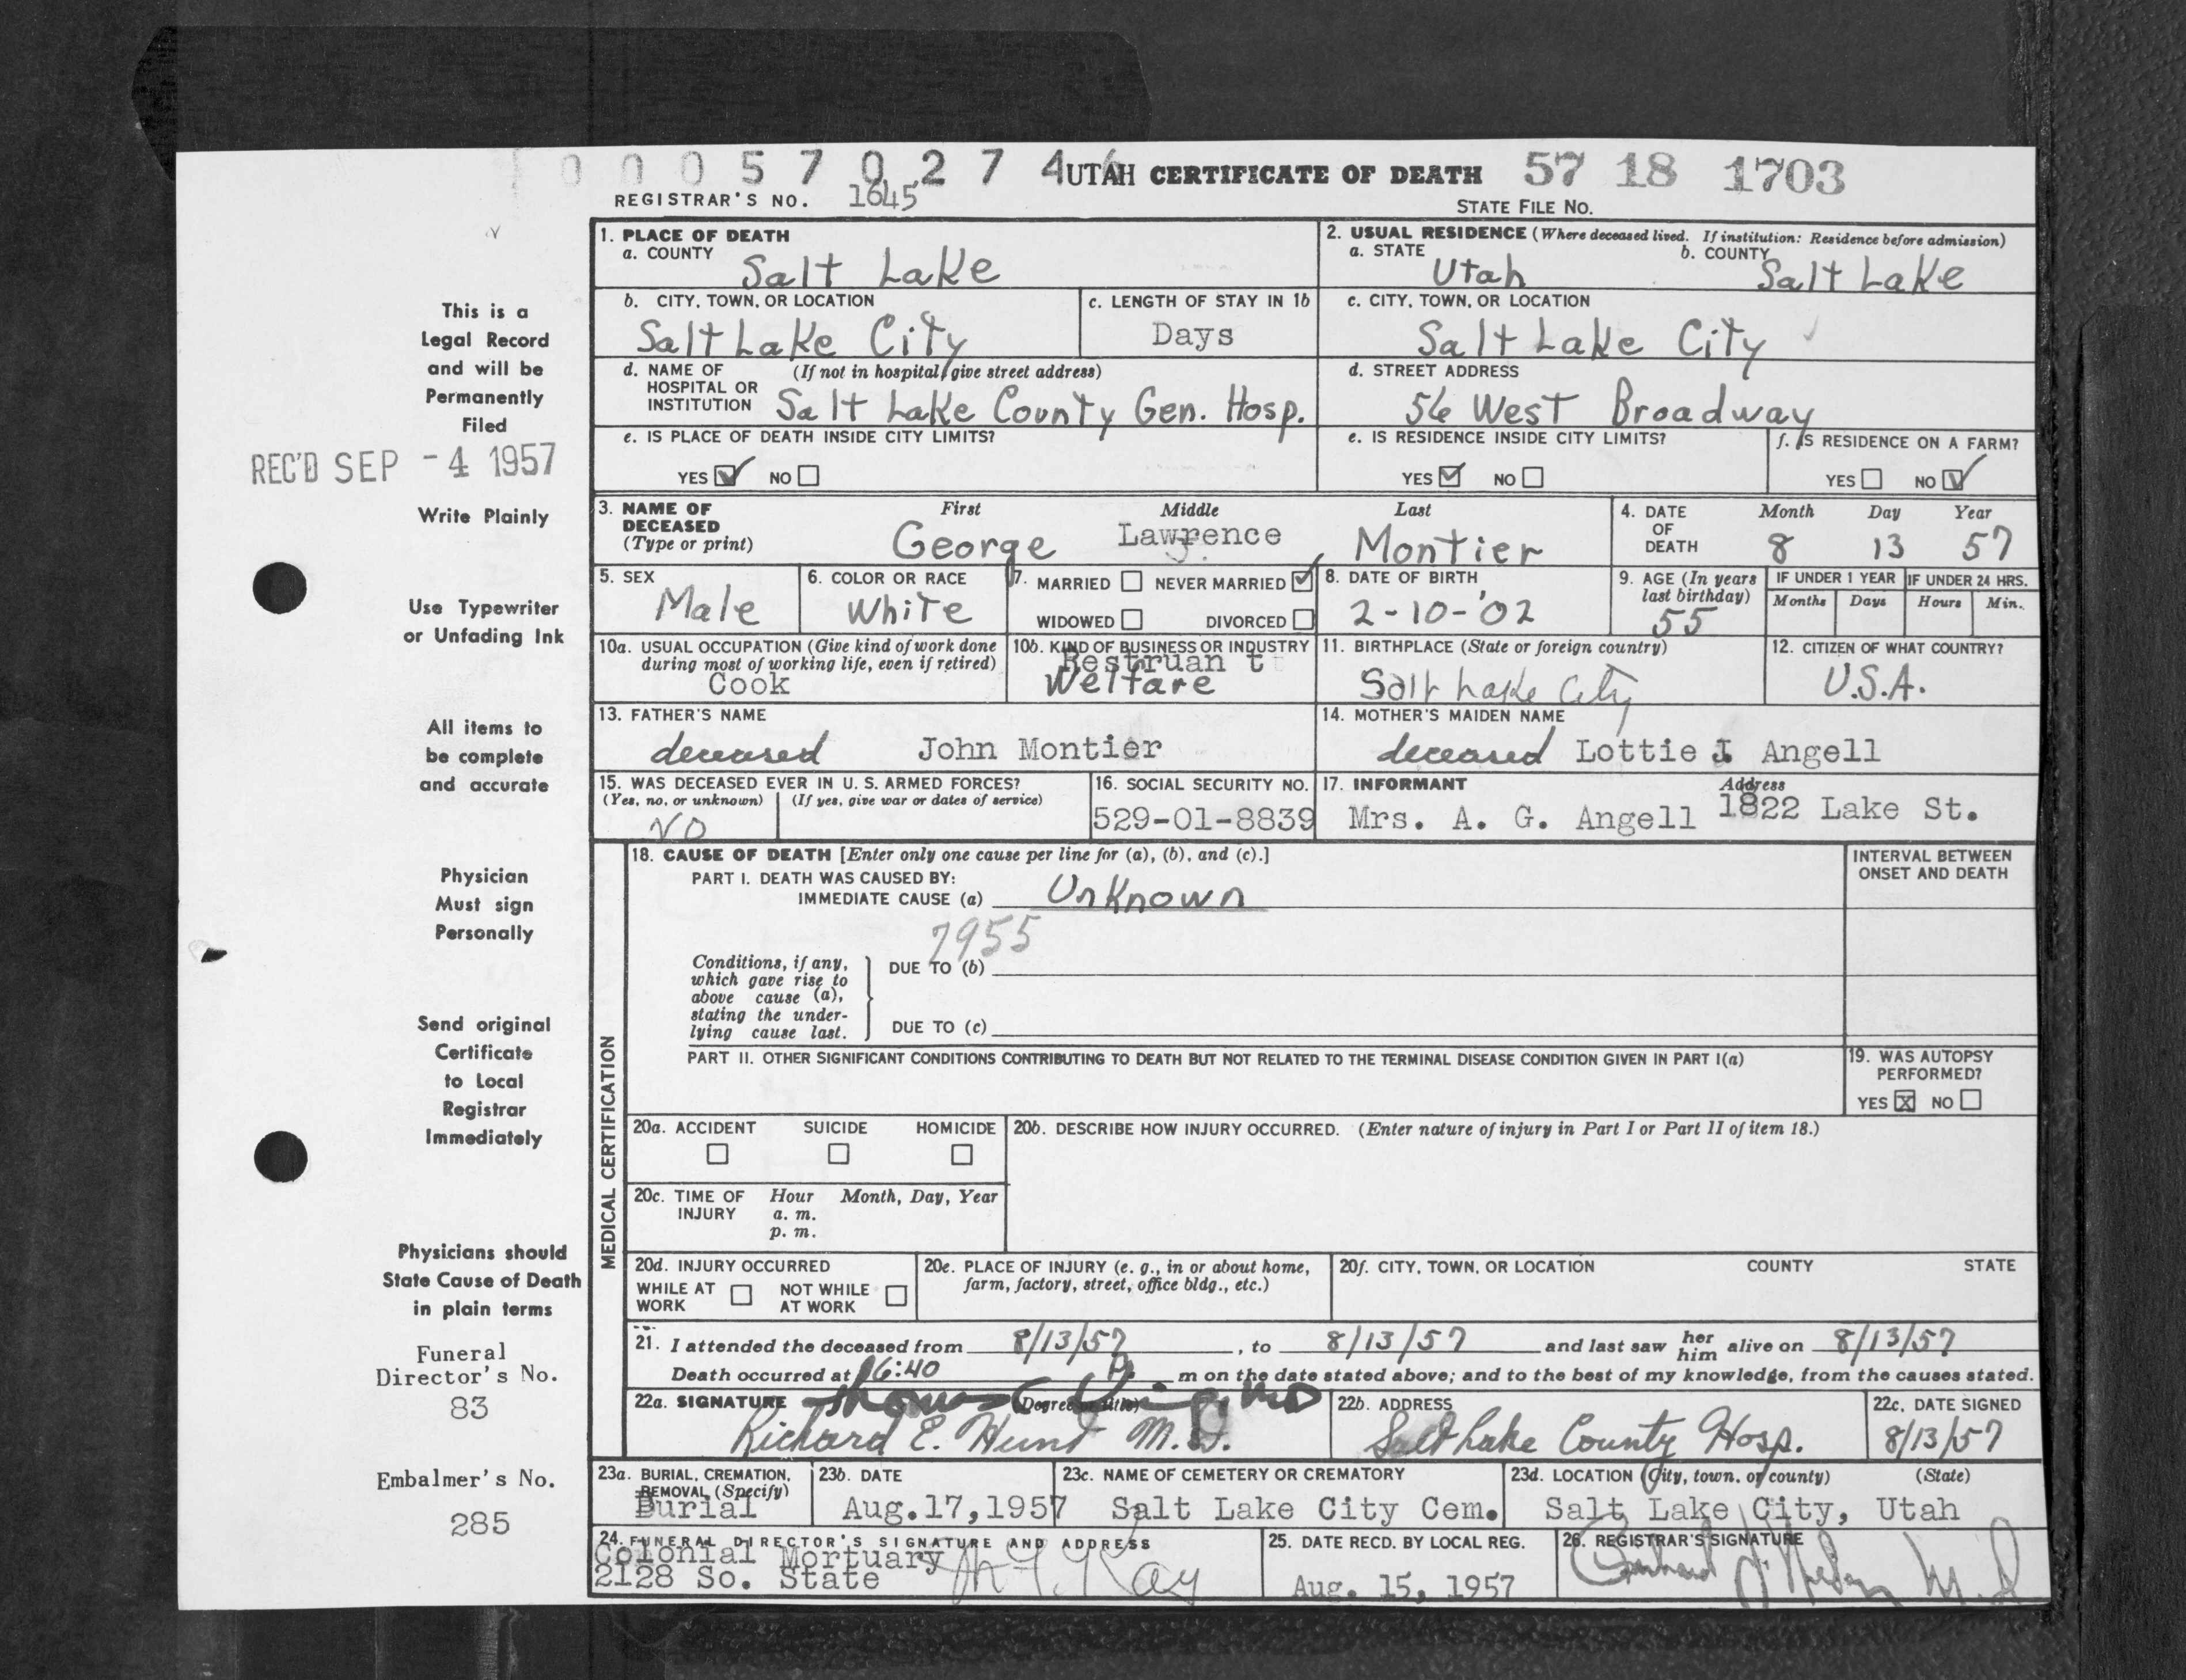 0 0 0 5 7 0 2 7 4 UTAH CERTIFICATE OF DEATH 57 18 1703
REGISTRAR'S NO. 1645
STATE FILE NO.
This is a
Legal Record
and will be
Permanently
Filed
REC'D SEP -4 1957
Write Plainly
Use Typewriter
or Unfading Ink
All items to
be complete
and accurate
Physician
Must sign
Personally
Send original
Certificate
to Local
Registrar
Immediately
Physicians should
State Cause of Death
in plain terms
Funeral
Director's No.
83
Embalmer's No.
285
1. PLACE OF DEATH
a. COUNTY
Salt Lake
2. USUAL RESIDENCE (Where deceased lived. If institution: Residence before admission)
a. STATE b. COUNTY
Utah Salt Lake
b. CITY, TOWN, OR LOCATION
Salt Lake City
c. LENGTH OF STAY IN 1b
Days
c. CITY, TOWN, OR LOCATION
Salt Lake City
d. NAME OF (If not in hospital, give street address)
HOSPITAL OR
INSTITUTION Salt Lake County Gen. Hosp.
d. STREET ADDRESS
56 West Broadway
e. IS PLACE OF DEATH INSIDE CITY LIMITS?
YES NO
e. IS RESIDENCE INSIDE CITY LIMITS?
YES NO
f. IS RESIDENCE ON A FARM?
YES NO
3. NAME OF First Middle Last
DECEASED
(Type or print)
George Lawrence Montier
J.
4. DATE Month Day Year
OF
DEATH 8 13 57
5. SEX
Male
6. COLOR OR RACE
White
7. MARRIED NEVER MARRIED
WIDOWED DIVORCED
8. DATE OF BIRTH
2-10-'02
9. AGE (In years
last birthday)
55
IF UNDER 1 YEAR IF UNDER 24 HRS.
Months Days Hours Min.
10a. USUAL OCCUPATION (Give kind of work done
during most of working life, even if retired)
Cook
10b. KIND OF BUSINESS OR INDUSTRY
Restruan t
Welfare
11. BIRTHPLACE (State or foreign country)
Salt Lake City
12. CITIZEN OF WHAT COUNTRY?
U.S.A.
13. FATHER'S NAME
deceased John Montier
14. MOTHER'S MAIDEN NAME
deceased Lottie J. Angell
15. WAS DECEASED EVER IN U. S. ARMED FORCES?
(Yes, no, or unknown) (If yes, give war or dates of service)
NO
16. SOCIAL SECURITY NO.
529-01-8839
17. INFORMANT Address
Mrs. A. G. Angell 1822 Lake St.
MEDICAL CERTIFICATION
18. CAUSE OF DEATH [Enter only one cause per line for (a), (b), and (c).]
PART I. DEATH WAS CAUSED BY:
IMMEDIATE CAUSE (a) Unknown
7955
INTERVAL BETWEEN
ONSET AND DEATH
Conditions, if any,
which gave rise to
above cause (a),
stating the under-
lying cause last.
DUE TO (b)
DUE TO (c)
PART II. OTHER SIGNIFICANT CONDITIONS CONTRIBUTING TO DEATH BUT NOT RELATED TO THE TERMINAL DISEASE CONDITION GIVEN IN PART I(a)
19. WAS AUTOPSY
PERFORMED?
YES X NO
20a. ACCIDENT SUICIDE HOMICIDE
20b. DESCRIBE HOW INJURY OCCURRED. (Enter nature of injury in Part I or Part II of item 18.)
20c. TIME OF Hour Month, Day, Year
INJURY a. m.
p. m.
20d. INJURY OCCURRED
WHILE AT NOT WHILE
WORK AT WORK
20e. PLACE OF INJURY (e. g., in or about home,
farm, factory, street, office bldg., etc.)
20f. CITY, TOWN, OR LOCATION COUNTY STATE
21. I attended the deceased from 8/13/57, to 8/13/57 and last saw her him alive on 8/13/57
Death occurred at 6:40 P. m on the date stated above; and to the best of my knowledge, from the causes stated.
22a. SIGNATURE (Degree or title)
Thomas C King MD
Richard E. Hunt M.D.
22b. ADDRESS
Salt Lake County Hosp.
22c. DATE SIGNED
8/13/57
23a. BURIAL, CREMATION,
REMOVAL (Specify)
Burial
23b. DATE
Aug.17,1957
23c. NAME OF CEMETERY OR CREMATORY
Salt Lake City Cem.
23d. LOCATION (City, town, or county) (State)
Salt Lake City, Utah
24. FUNERAL DIRECTOR'S SIGNATURE AND ADDRESS
Colonial Mortuary
2128 So. State
25. DATE RECD. BY LOCAL REG.
Aug. 15, 1957
26. REGISTRAR'S SIGNATURE